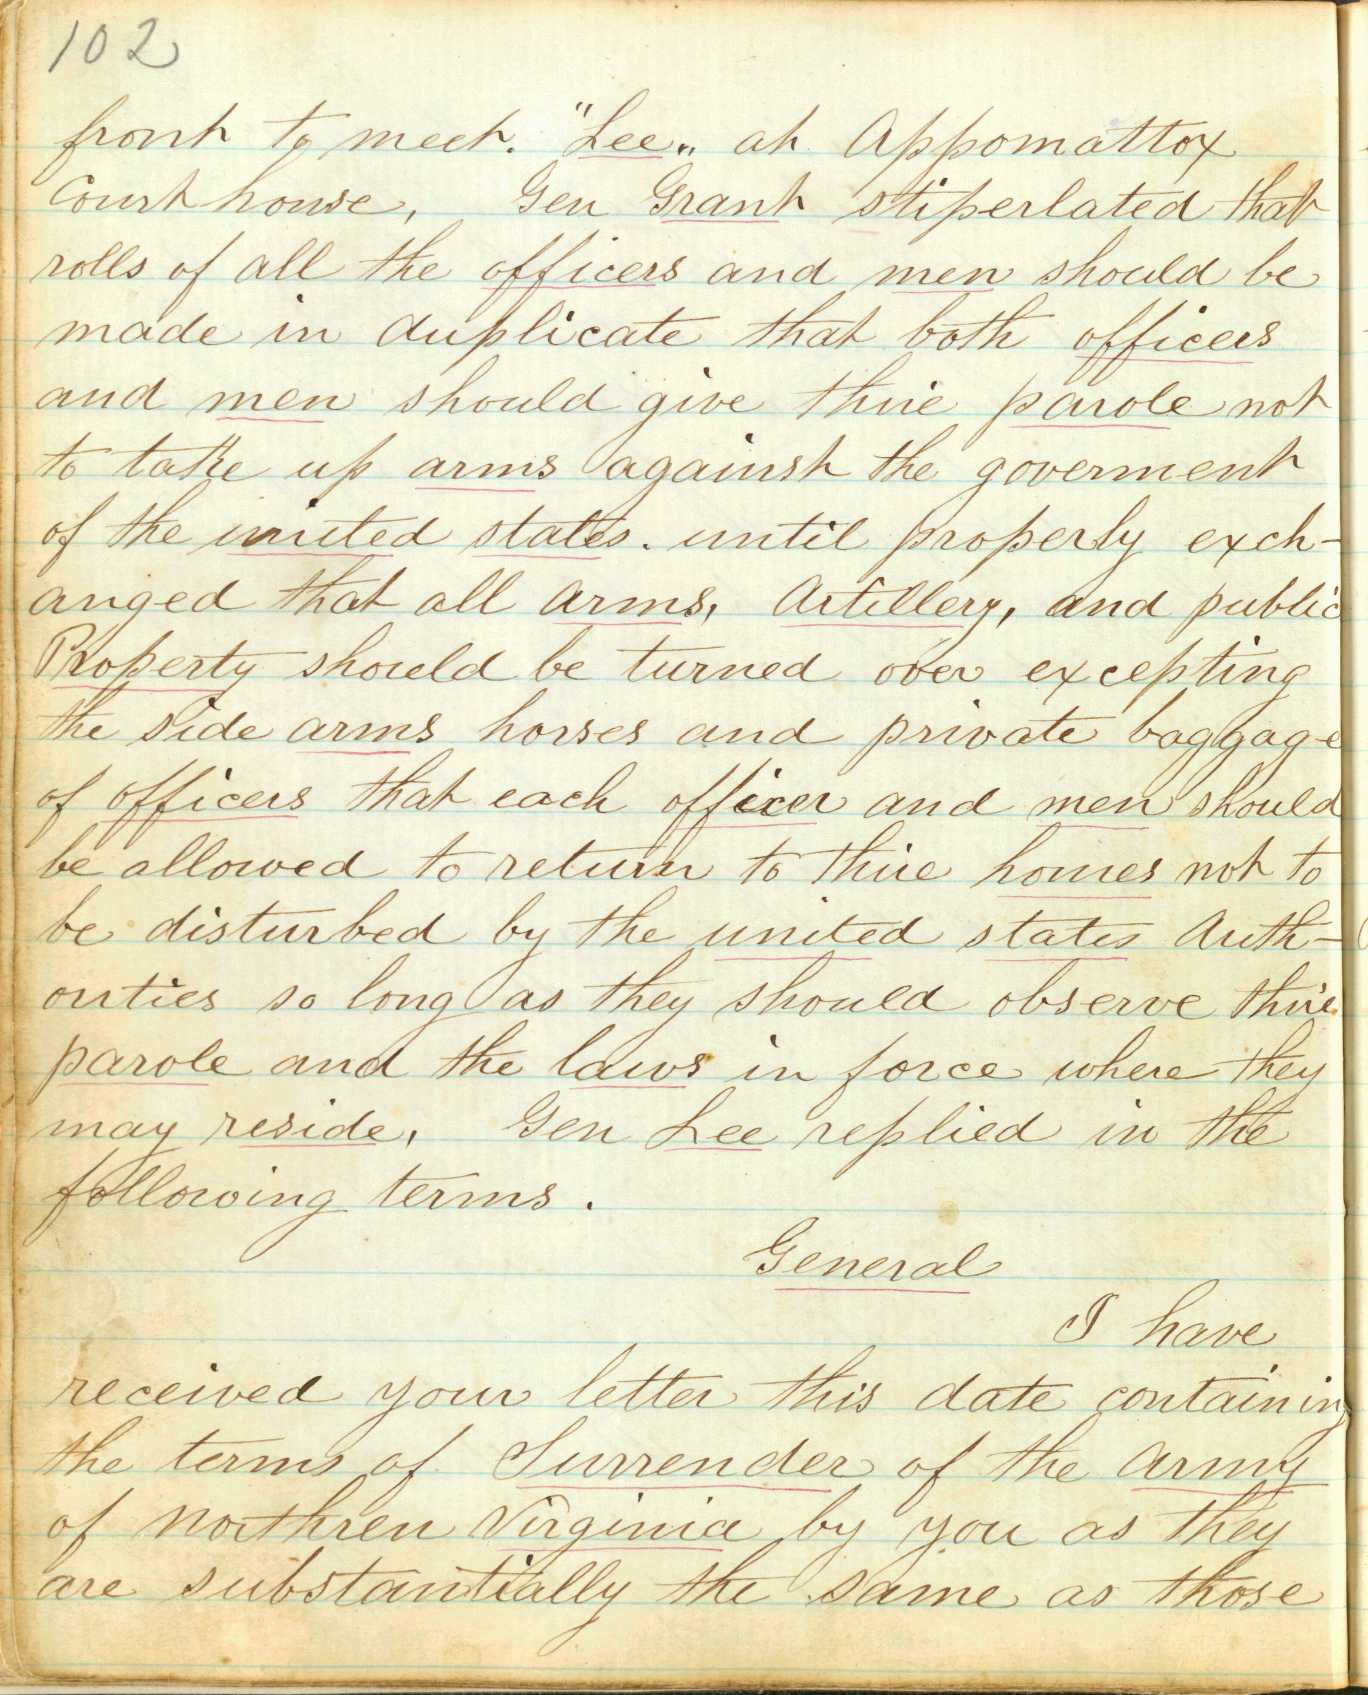 102
front to meet. "Lee„ at Appomattox
Court house, Gen Grant stiperlated that
rolls of all the officers and men should be
made in duplicate that both officers
and men should give thire parole not
to take up arms against the goverment
of the united states. until properly exch-
anged that all arms, Artillery, and public
Property should be turned over excepting
the side arms horses and private baggage
of officers that each officer and men should
be allowed to return to thire homes not to
be disturbed by the united states Auth-
orities so long as they should observe thire
parole and the laws in force where they
may reside, Gen Lee replied in the
following terms.
General
I have
received your letter this date containing
the terms of Surrender of the Army
of Northren Virginia by you as they
are substantially the same as those